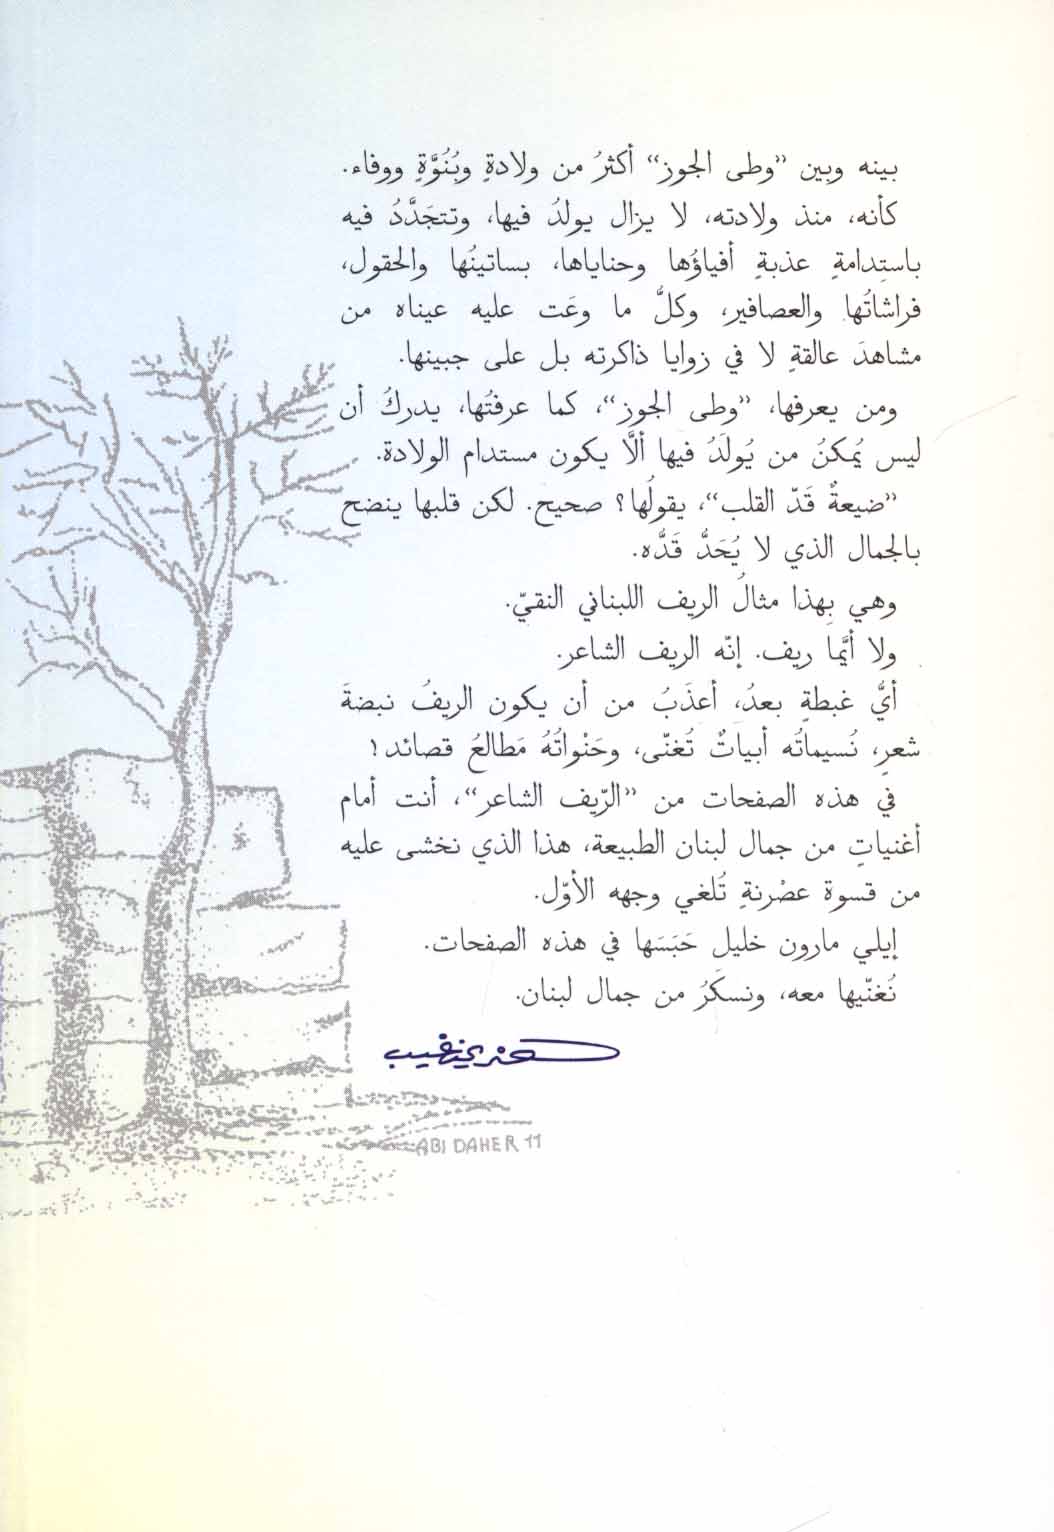 بينه وبين ”وطى الجوز“ أكثرُ من ولادةٍ وبُنُوَّةٍ ووفاء.
كأنه، منذ ولادته، لا يزال يولدُ فيها، وتتجَدَّدُ فيه
باستِدامةٍ عذبةٍ أفياؤُها وحناياها، بساتينُها والحقول،
فراشاتُها والعصافير، وكلُّ ما وعَت عليه عيناه من
مشاهدَ عالقةٍ لا في زوايا ذاكرته بل على جبينها.
ومن يعرفها، ”وطى الجوز“، كما عرفتُها، يدركُ أن
ليس يُمكنُ من يُولَدُ فيها ألَّا يكون مستدام الولادة.
”ضيعةٌ قَدّ القلب“، يقولُها؟ صحيح. لكن قلبها ينضح
بالجمال الذي لا يُحَدُّ قَدُّه.
وهي بِهذا مثالُ الريف اللبناني النقيّ.
ولا أيَّما ريف. إنّه الريف الشاعر.
أيُّ غبطةٍ بعدُ، أعذَبُ من أن يكون الريفُ نبضةَ
شعرٍ، نُسيماتُه أبياتٌ تُغنّى، وحَنْواتُهُ مَطالعُ قصائد؟
في هذه الصفحات من ”الرّيف الشاعر“، أنت أمام
أغنياتٍ من جمال لبنان الطبيعة، هذا الذي نخشى عليه
من قسوة عصْرنةٍ تُلغي وجهه الأوّل.
إيلي مارون خليل حَبَسَها في هذه الصفحات.
نُغنّيها معه، ونسكَرُ من جمال لبنان.
هنري زغيب
ABI DAHER 11